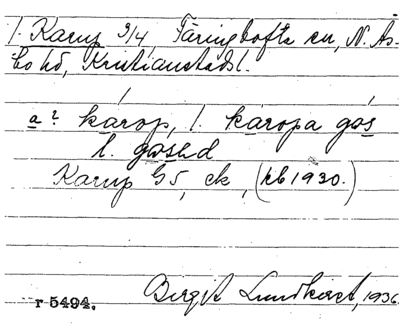 1. Karup 3/4, Färingtofta sn, N. Ås-
bo hd, Kristianstads l.
a? károp, l. káropa gås
l. gåsɛd
Karup G5, ek, (kb 1930.)
r 5494. Birgit Lundkvist, 1936.